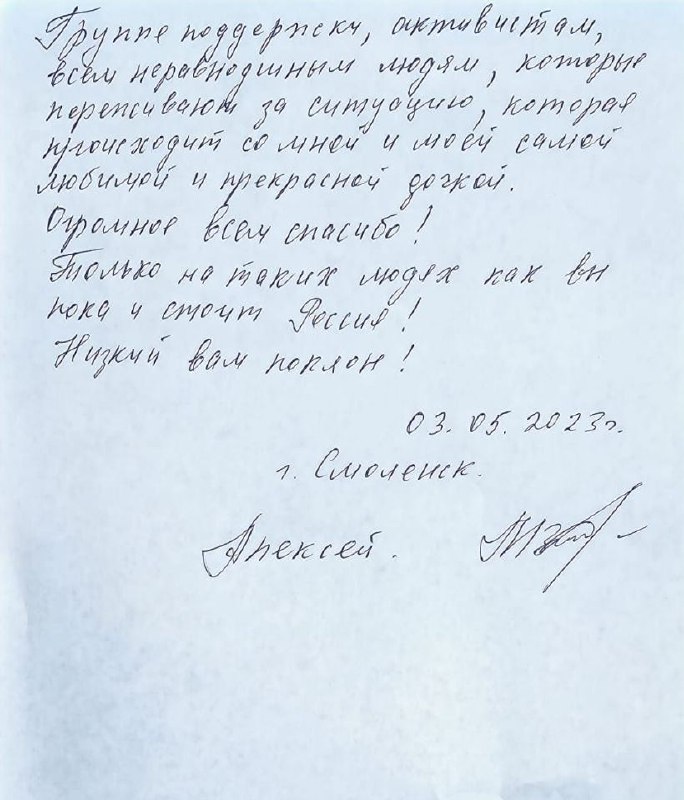 Группе поддержки, активистам,
всем неравнодушным людям, которые
переживают за ситуацию, которая
происходит со мной и моей самой
любимой и прекрасной дочкой.
Огромное всем спасибо!
Только на таких людях как вы
пока и стоит Россия!
Низкий вам поклон!
03.05.2023г.
г. Смоленск.
Алексей.